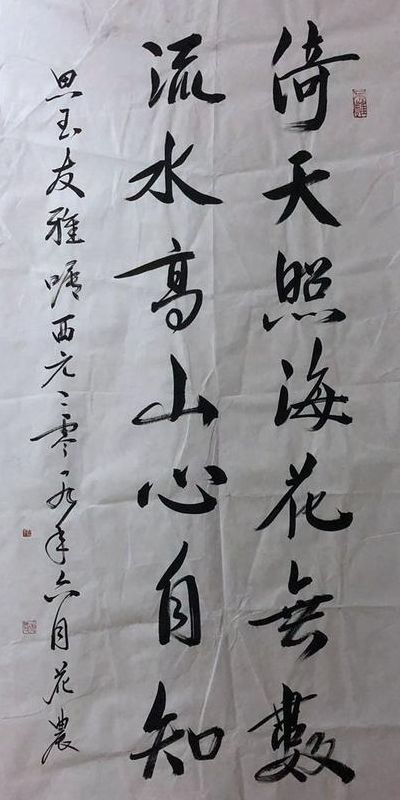 倚天照海花無數
流水高山心自知
思玉友雅嘱西元二零一九年六月花農